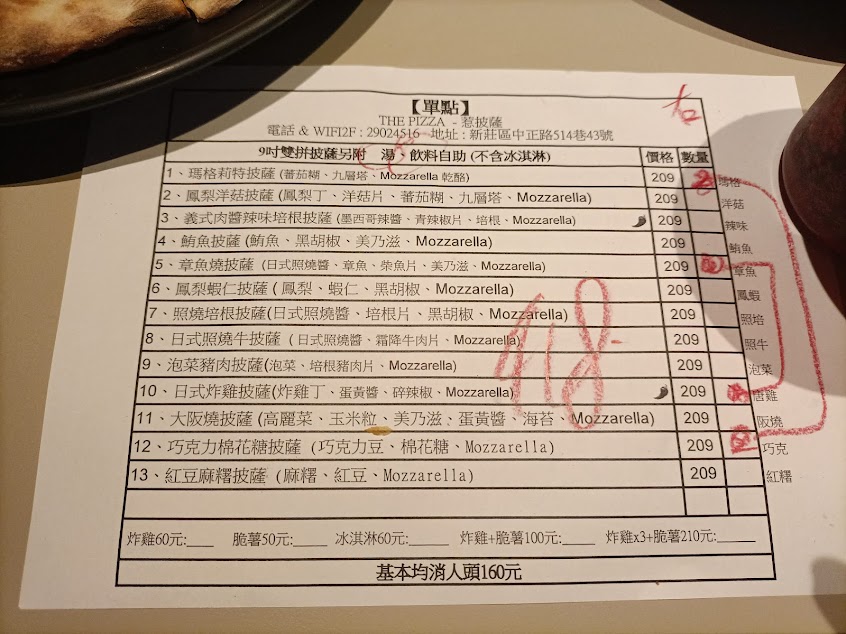 【單點】
THE PIZZA - 惹披薩
電話 & WIFI2F : 29024516 地址 : 新莊區中正路514巷43號
9吋雙拼披薩另附 湯、飲料自助 (不含冰淇淋) 價格 數量
1、瑪格莉特披薩 (蕃茄糊、九層塔、Mozzarella 乾酪) 209 瑪格
2、鳳梨洋菇披薩 (鳳梨丁、洋菇片、蕃茄糊、九層塔、Mozzarella) 209 洋菇
3、義式肉醬辣味培根披薩 (墨西哥辣醬、青辣椒片、培根、Mozzarella) 209 辣味
4、鮪魚披薩 (鮪魚、黑胡椒、美乃滋、Mozzarella) 209 鮪魚
5、章魚燒披薩 (日式照燒醬、章魚、柴魚片、美乃滋、Mozzarella) 209 章魚
6、鳳梨蝦仁披薩 ( 鳳梨、蝦仁、黑胡椒、Mozzarella) 209 鳳蝦
7、照燒培根披薩(日式照燒醬、培根片、黑胡椒、Mozzarella) 209 照培
8、日式照燒牛披薩 ( 日式照燒醬、霜降牛肉片、Mozzarella) 209 照牛
9、泡菜豬肉披薩(泡菜、培根豬肉片、Mozzarella) 209 泡菜
10、日式炸雞披薩(炸雞丁、蛋黃醬、碎辣椒、Mozzarella) 209 唐雞
11、大阪燒披薩 (高麗菜、玉米粒、美乃滋、蛋黃醬、海苔、Mozzarella) 209 阪燒
12、巧克力棉花糖披薩 (巧克力豆、棉花糖、Mozzarella) 209 巧克
13、紅豆麻糬披薩 (麻糬、紅豆、Mozzarella) 209 紅糬
418
炸雞60元:___ 脆薯50元:____ 冰淇淋60元:____ 炸雞+脆薯100元:____ 炸雞x3+脆薯210元:_____
基本均消人頭160元